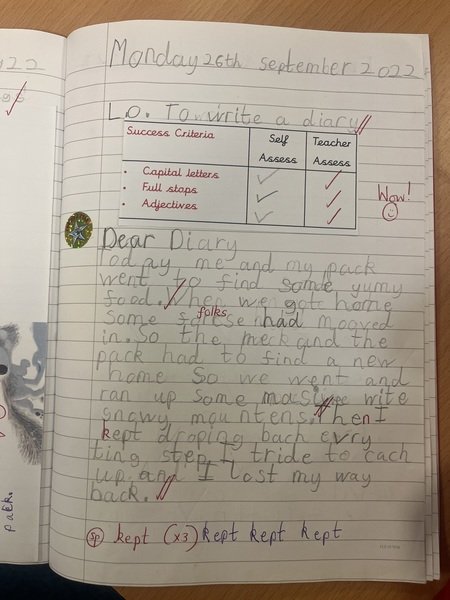 022
Monday 26th september 2022
L.O. To write a diary
Success Criteria Self Assess Teacher Assess
• Capital letters
• Full stops
• Adjectives
Wow!
Dear Diary
Today me and my pack
went to find some yumy
food. When we got home
folks
some had mooved
in. So the meck and the
pack had to find a new
home So we went and
ran up some masive wite
snowy mountens. Then I
kept droping bach evry
ting step I tride to cach
up and I lost my way
back.
pack.
sp kept (x3) kept kept kept